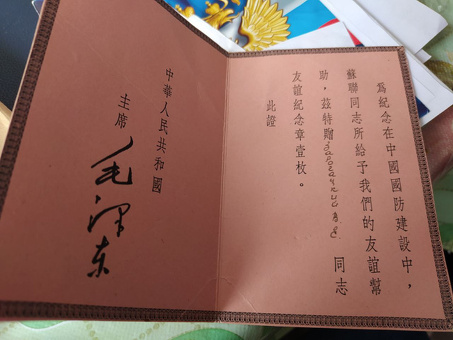 為紀念在中國國防建設中，
蘇聯同志所給予我們的友誼幫
助，茲特贈 同志
友誼紀念章壹枚。
此證
中華人民共和國
主席 毛澤東